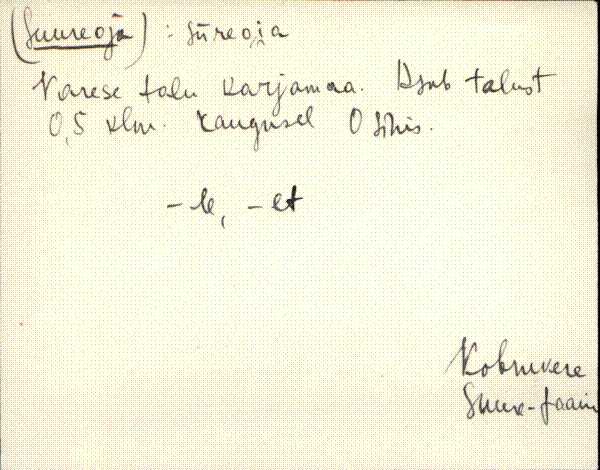 (Suureoja) : sūreoja
Varese talu karjamaa. Asub talust
0,5 klm. kaugusel O sihis.
-le, -et
Kobruvere
Suure-Jaani